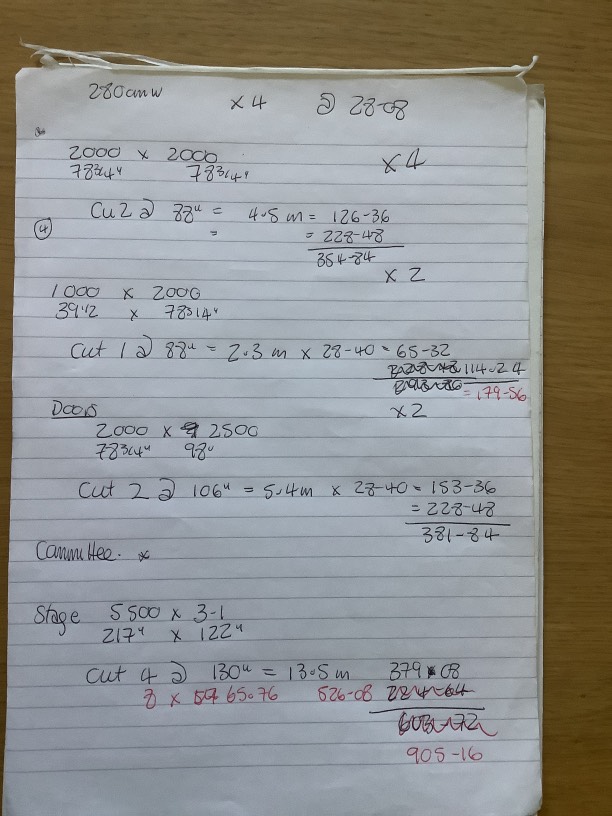 280cmw x 4 @ 28-08
2000 x 2000 x4
78 3/4" 78 3/4"
Cut 2 @ 88" = 4.5 m = 126-36
④ = = 228-48
354-84
x 2
1000 x 2000
39 1/2 x 78 3/4"
Cut 1 @ 88" = 2.3 m x 28-40 = 65-32
114.24
= 179-56
Doors x2
2000 x 2500
78 3/4" 98"
Cut 2 @ 106" = 5.4m x 28-40 = 153-36
= 228-48
381-84
Committee. x
Stage 5500 x 3-1
217" x 122"
Cut 4 @ 130" = 13.5 m 379-08
8 x 65.76 526-08
905-16